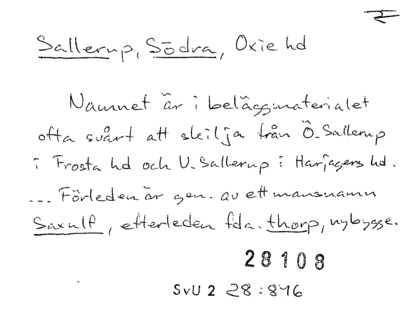 Sallerup, Södra, Oxie hd
Namnet är i beläggmaterialet
ofta svårt att skilja från Ö. Sallerup
i Frosta hd och V. Sallerup i Harjagers hd.
... Förleden är gen. av ett mansnamn
Saxulf, efterleden fda. thorp, nybygge.
28108
SvU 2 28:846